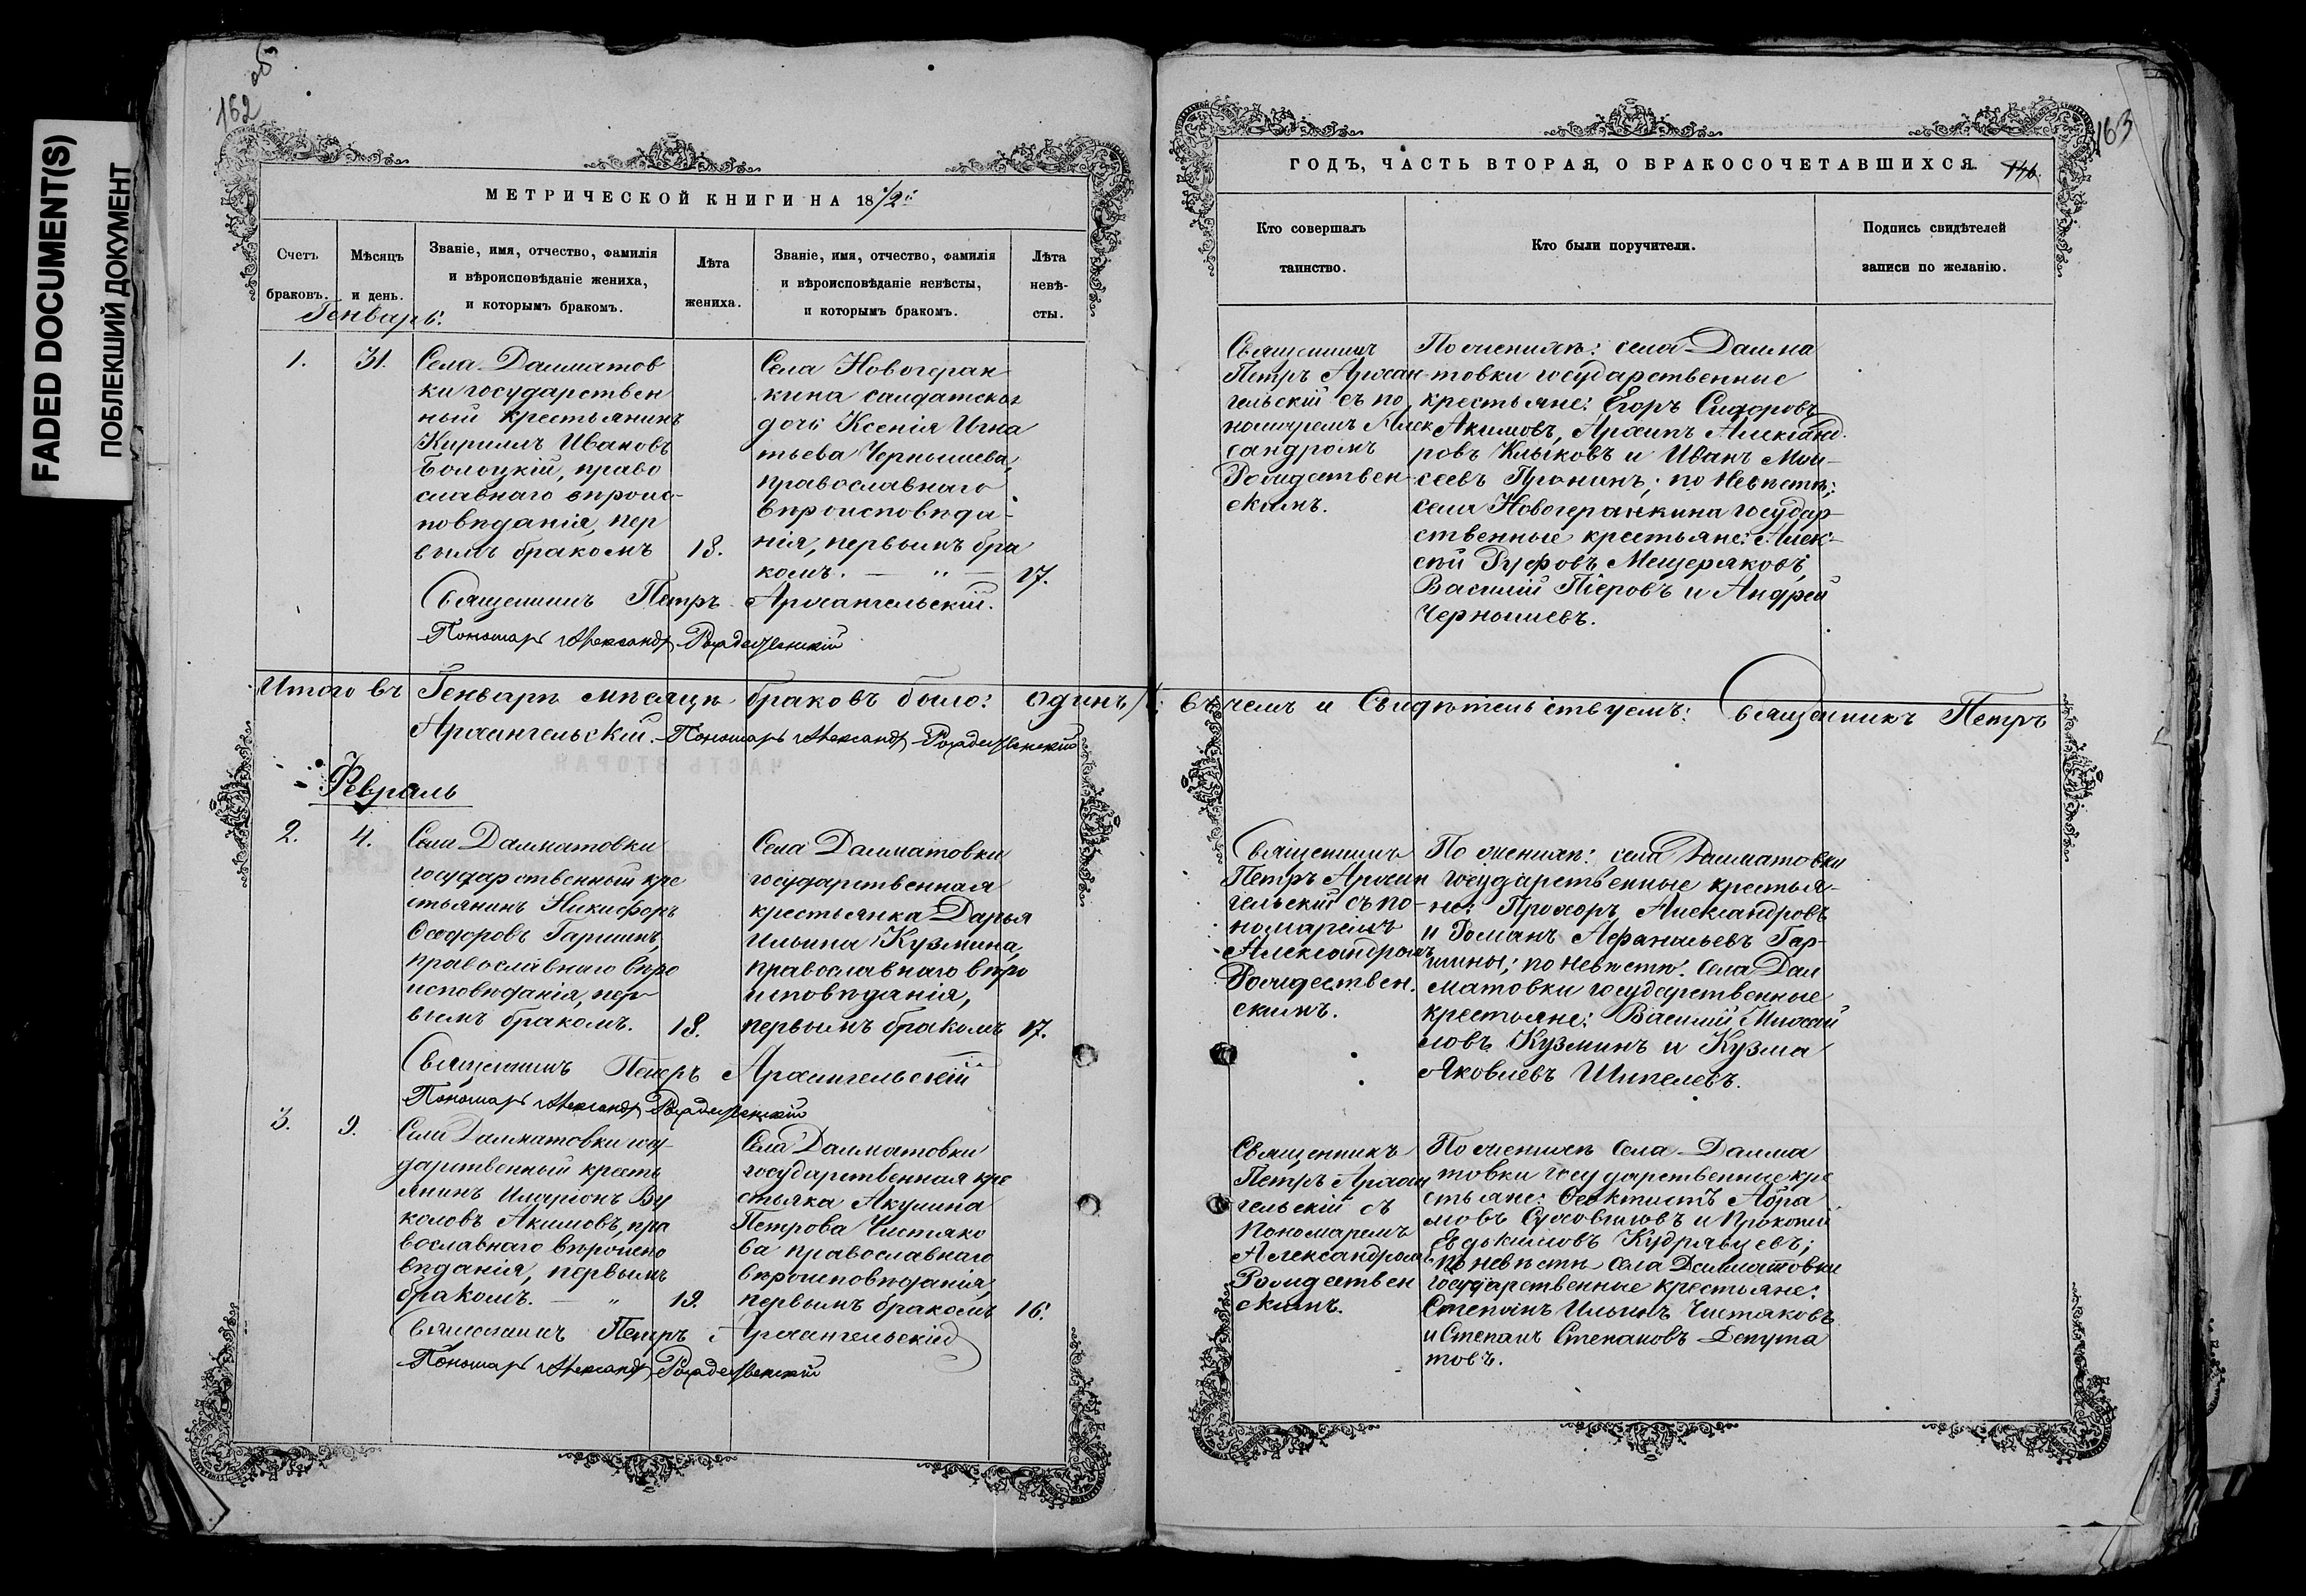 FADED DOCUMENT(S)
ПОБЛЕКШИЙ ДОКУМЕНТ
162 об
МЕТРИЧЕСКОЙ КНИГИ НА 18
Счетъ браковъ.
Мѣсяцъ и день.
Званіе, имя, отчество, фамилія
и вѣроисповѣданіе жениха,
и которымъ бракомъ.
Лѣта
жениха.
Званіе, имя, отчество, фамилія
и вѣроисповѣданіе невѣсты,
и которымъ бракомъ.
Лѣта
невѣ-
сты.
Генварь.
1.
31.
Села Далматов
ки государствен
ный крестьянинъ
Кириллъ Ивановъ
Болоцкій, право
славнаго вѣроис-
повѣданія, пер
вымъ бракомъ
18.
Села Новогеран
кина салдатская
дочь Ксенія Игна
тьева Чернышева,
православнаго
вѣроисповѣда-
нія, первымъ бра
комъ. — „ —
17.
Священникъ Петръ Архангельскій.
Пономарь Александр Рождественскій
Итого въ Генварѣ мѣсяцѣ браковъ было: одинъ /1/
Архангельскій. Пономарь Александр Рождественскій
Февраль
2.
4.
Села Далматовки
государственный кре
стьянинъ Никифоръ
Ѳеодоровъ Гаршинъ,
православнаго вѣро
исповѣданія, пер-
вымъ бракомъ.
18.
Села Далматовки
государственная
крестьянка Дарья
Ильина Кузмина,
православнаго вѣро
исповѣданія,
первымъ бракомъ
17.
Священникъ Петръ Архангельскій
Пономарь Александр Рождественскій
3.
9.
Села Далматовки госу-
дарственный кресть
янинъ Иларіонъ Ву
коловъ Акимовъ, пра
вославнаго вѣроиспо
вѣданія, первымъ
бракомъ. — „
19.
Села Далматовки
государственная кре
стьяка Акулина
Петрова Чистяко
ва православнаго
вѣроисповѣданія,
первымъ бракомъ
16.
Священникъ Петръ Архангельскій
Пономарь Александр Рождественскій
163
ГОДЪ, ЧАСТЬ ВТОРАЯ, О БРАКОСОЧЕТАВШИХСЯ.
Кто совершалъ
таинство.
Кто были поручители.
Подпись свидѣтелей
записи по желанію.
Священникъ
Петръ Архан
гельскій съ по
номаремъ Алек
сандромъ
Рождествен
скимъ.
По женихѣ: села Далма
товки государственные
крестьяне: Егоръ Сидоровъ
Акимовъ, Архипъ Александ
ровъ Клыковъ и Иванъ Мои-
сеевъ Пронинъ; по невѣстѣ:
села Новогеранкина государ-
ственные крестьяне: Алек-
сѣй Руфовъ Мещеряковъ,
Василій Піеровъ и Андрей
Чернышевъ.
въ чемъ и Свидѣтельствуемъ: Священникъ Петръ
Священникъ
Петръ Архан
гельскій съ по-
номаремъ
Александромъ
Рождествен.
скимъ.
По женихѣ: села Далматовки
государственные крестья-
не: Прохоръ Александровъ
и Романъ Афанасьевъ Гар-
шины; по невѣстѣ: села Дал
матовки государственные
крестьяне: Василій Михай
ловъ Кузминъ и Кузма
Яковлевъ Шипелевъ.
Священникъ
Петръ Архан
гельскій съ
Пономаремъ
Александромъ
Рождествен
скимъ.
По женихѣ села Далма
товки государственные кре
стьяне: Ѳеоктистъ Абра
мовъ Суховиловъ и Прокопій
Евдокимовъ Кудрявцевъ;
по невѣстѣ села Далматовки
государственные крестьяне:
Степанъ Ильинъ Чистяковъ
и Степанъ Степановъ Депута
товъ.